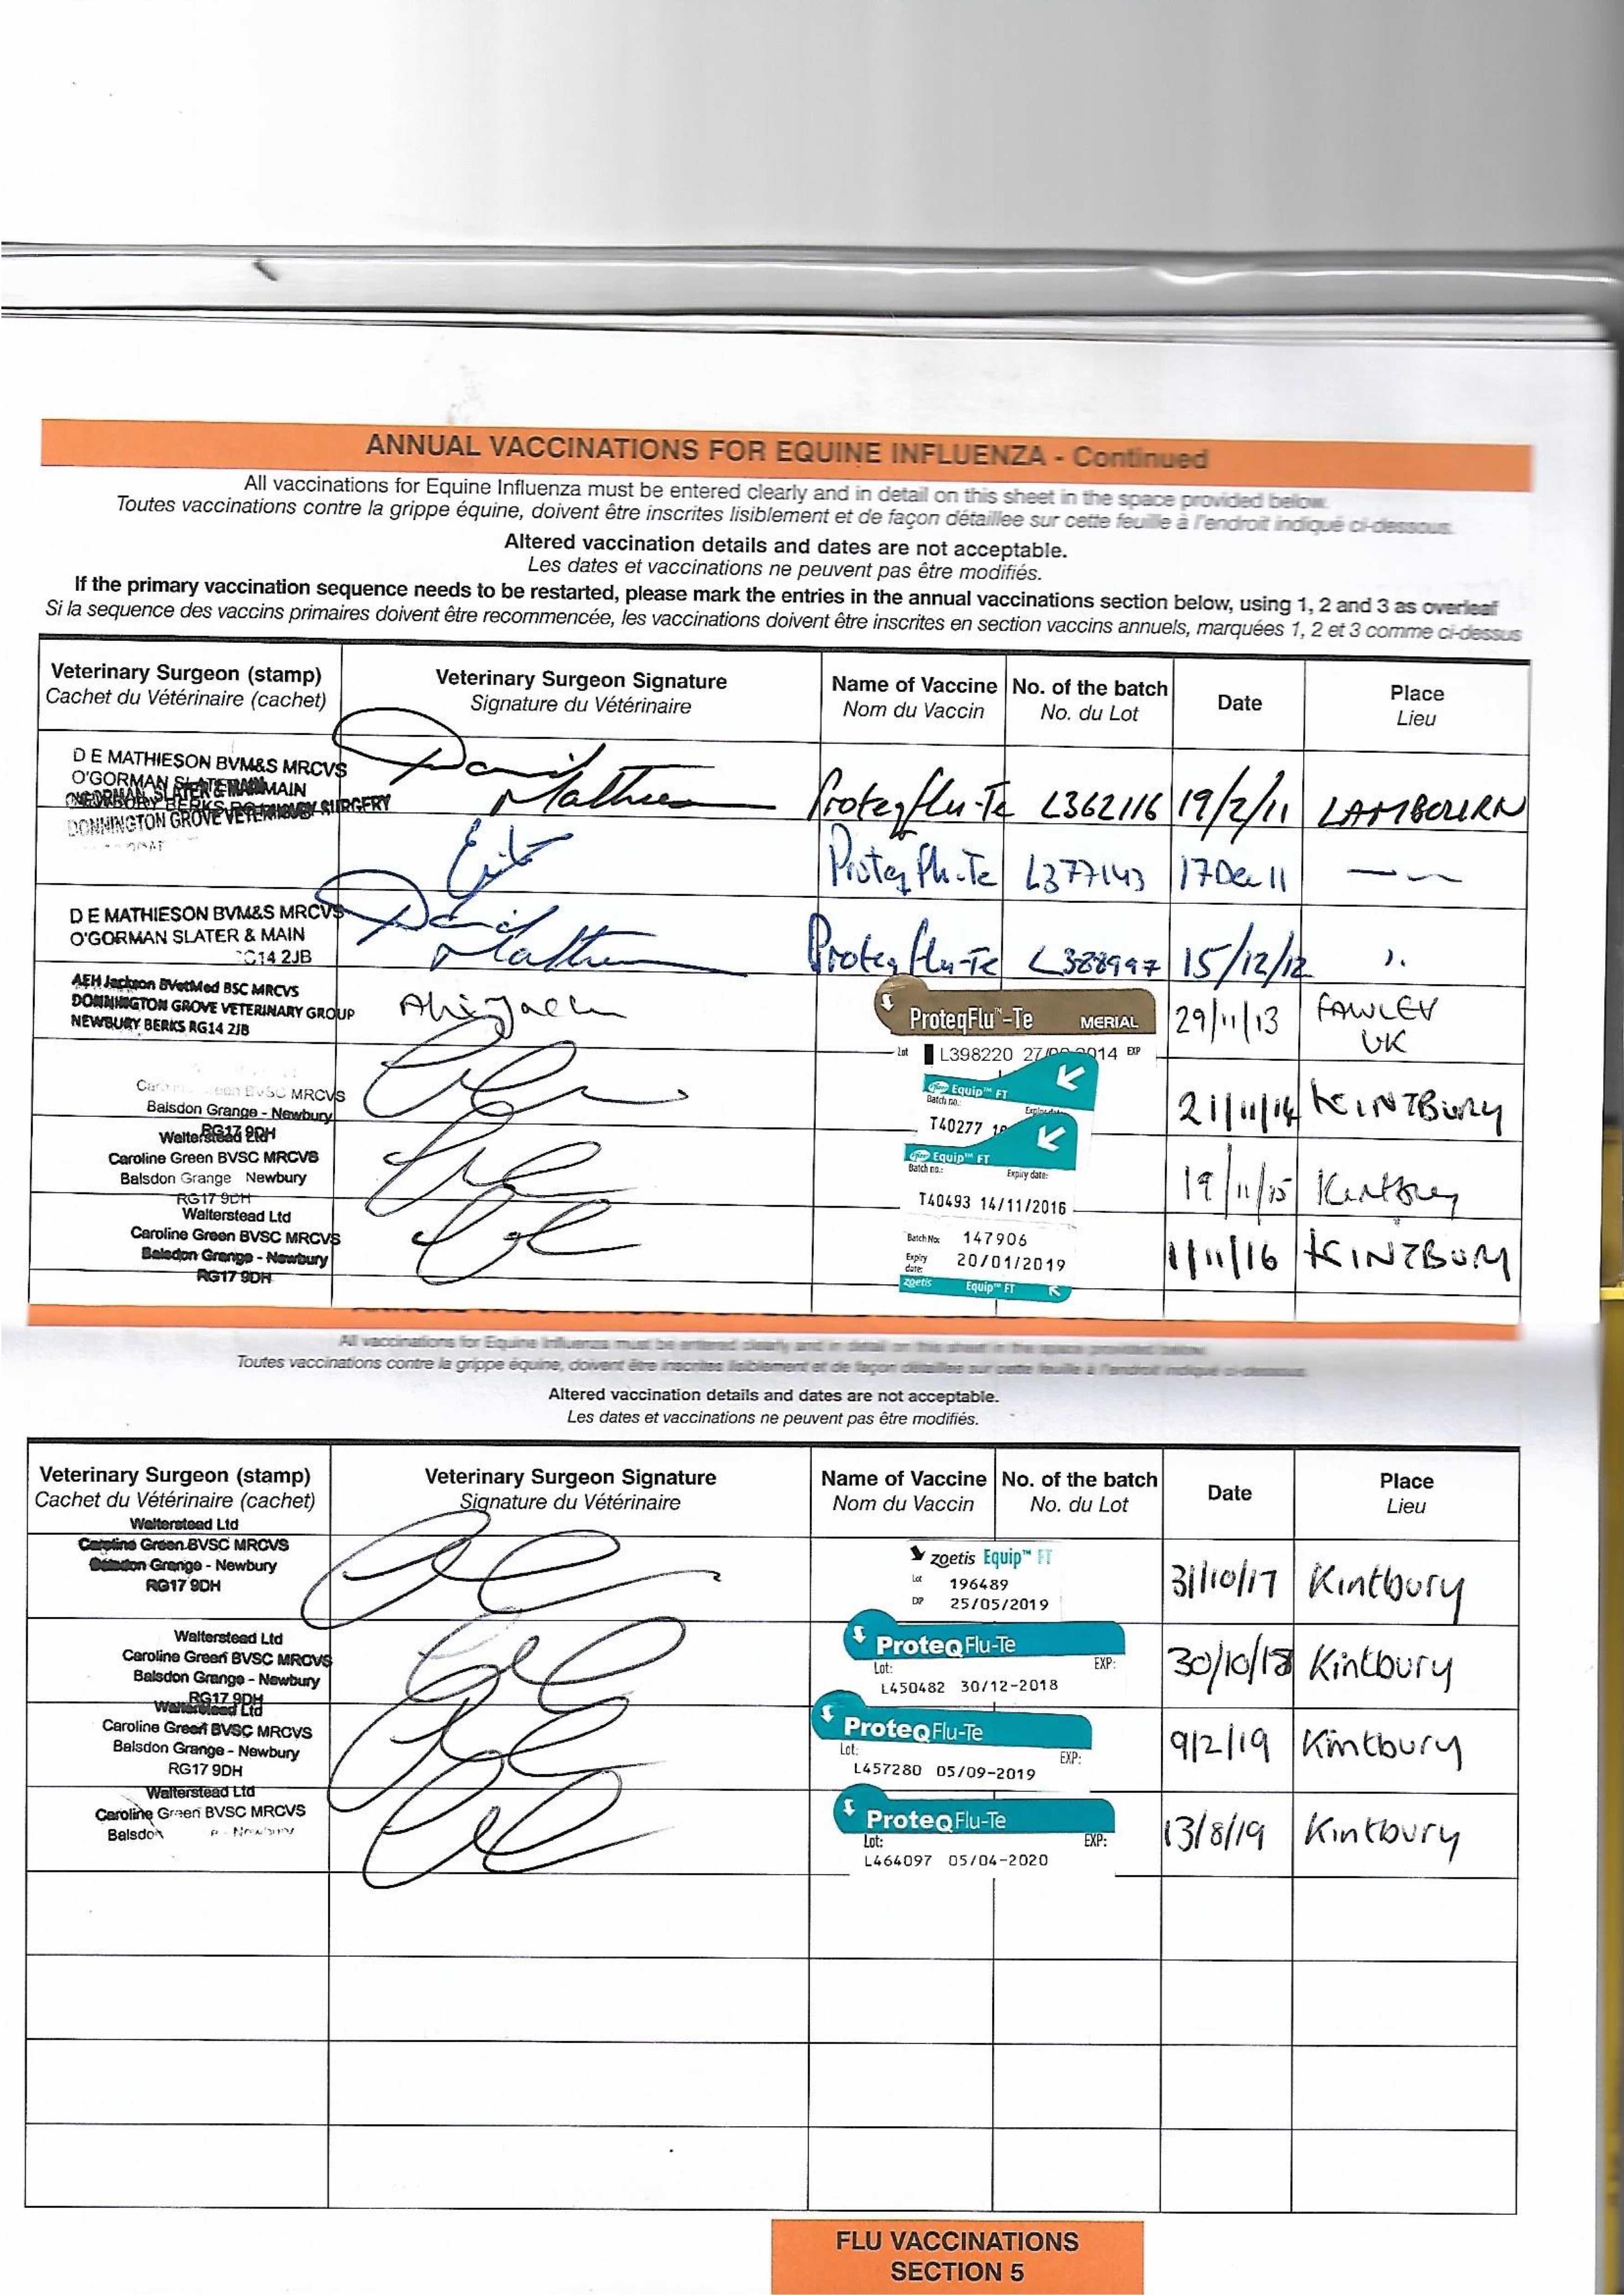 ANNUAL VACCINATIONS FOR EQUINE INFLUENZA - Continued
All vaccinations for Equine Influenza must be entered clearly and in detail on this sheet in the space provided below.
Toutes vaccinations contre la grippe équine, doivent être inscrites lisiblement et de façon détaillee sur cette feuille à l'endroit indiqué ci-dessous.
Altered vaccination details and dates are not acceptable.
Les dates et vaccinations ne peuvent pas être modifiés.
If the primary vaccination sequence needs to be restarted, please mark the entries in the annual vaccinations section below, using 1, 2 and 3 as overleaf
Si la sequence des vaccins primaires doivent être recommencée, les vaccinations doivent être inscrites en section vaccins annuels, marquées 1, 2 et 3 comme ci-dessus
Veterinary Surgeon (stamp) Veterinary Surgeon Signature Name of Vaccine No. of the batch Date Place
Cachet du Vétérinaire (cachet) Signature du Vétérinaire Nom du Vaccin No. du Lot Lieu
D E MATHIESON BVM&S MRCVS
O'GORMAN SLATER & MAIN
DONNINGTON GROVE VETERINARY SURGERY
David Mathieson Proteqflu-Te L362116 19/2/11 LAMBOURN
Proteq Flu-Te L377143 17 Dec 11
D E MATHIESON BVM&S MRCVS
O'GORMAN SLATER & MAIN
RG14 2JB
David Mathieson Proteqflu-Te L388997 15/12/12 ".
AEH Jackson BVetMed BSC MRCVS
DONNINGTON GROVE VETERINARY GROUP
NEWBURY BERKS RG14 2JB
ProteqFlu™-Te MERIAL 29/11/13 FAWLEY
UK
Lot L398220 27/ 2014 EXP
MRCVS
Balsdon Grange - Newbury
RG17 9DH
Pfizer Equip™ FT
Batch no.:
T40277
21/11/14 KINTBURY
Walterstead Ltd
Caroline Green BVSC MRCVS
Balsdon Grange Newbury
RG17 9DH
Pfizer Equip™ FT
Batch no.: Expiry date:
T40493 14/11/2016
19/11/15 Kintbury
Walterstead Ltd
Caroline Green BVSC MRCVS
Balsdon Grange - Newbury
RG17 9DH
Batch No: 147906
Expiry date: 20/01/2019
zoetis Equip™ FT
1/11/16 KINTBURY
All vaccinations for Equine Influenza must be entered clearly and in detail on this sheet in the space provided below.
Toutes vaccinations contre la grippe équine, doivent être inscrites lisiblement et de façon détaillee sur cette feuille à l'endroit indiqué ci-dessous.
Altered vaccination details and dates are not acceptable.
Les dates et vaccinations ne peuvent pas être modifiés.
Veterinary Surgeon (stamp) Veterinary Surgeon Signature Name of Vaccine No. of the batch Date Place
Cachet du Vétérinaire (cachet) Signature du Vétérinaire Nom du Vaccin No. du Lot Lieu
Walterstead Ltd
Caroline Green BVSC MRCVS
Balsdon Grange - Newbury
RG17 9DH
zoetis Equip™ FT
Lot 196489
EXP 25/05/2019
31/10/17 Kintbury
Walterstead Ltd
Caroline Green BVSC MRCVS
Balsdon Grange - Newbury
RG17 9DH
ProteqFlu-Te
Lot: EXP:
L450482 30/12-2018
30/10/18 Kintbury
Walterstead Ltd
Caroline Green BVSC MRCVS
Balsdon Grange - Newbury
RG17 9DH
ProteqFlu-Te
Lot: EXP:
L457280 05/09-2019
9/2/19 Kintbury
Walterstead Ltd
Caroline Green BVSC MRCVS
Balsdon Newbury
ProteqFlu-Te
Lot: EXP:
L464097 05/04-2020
13/8/19 Kintbury
FLU VACCINATIONS
SECTION 5